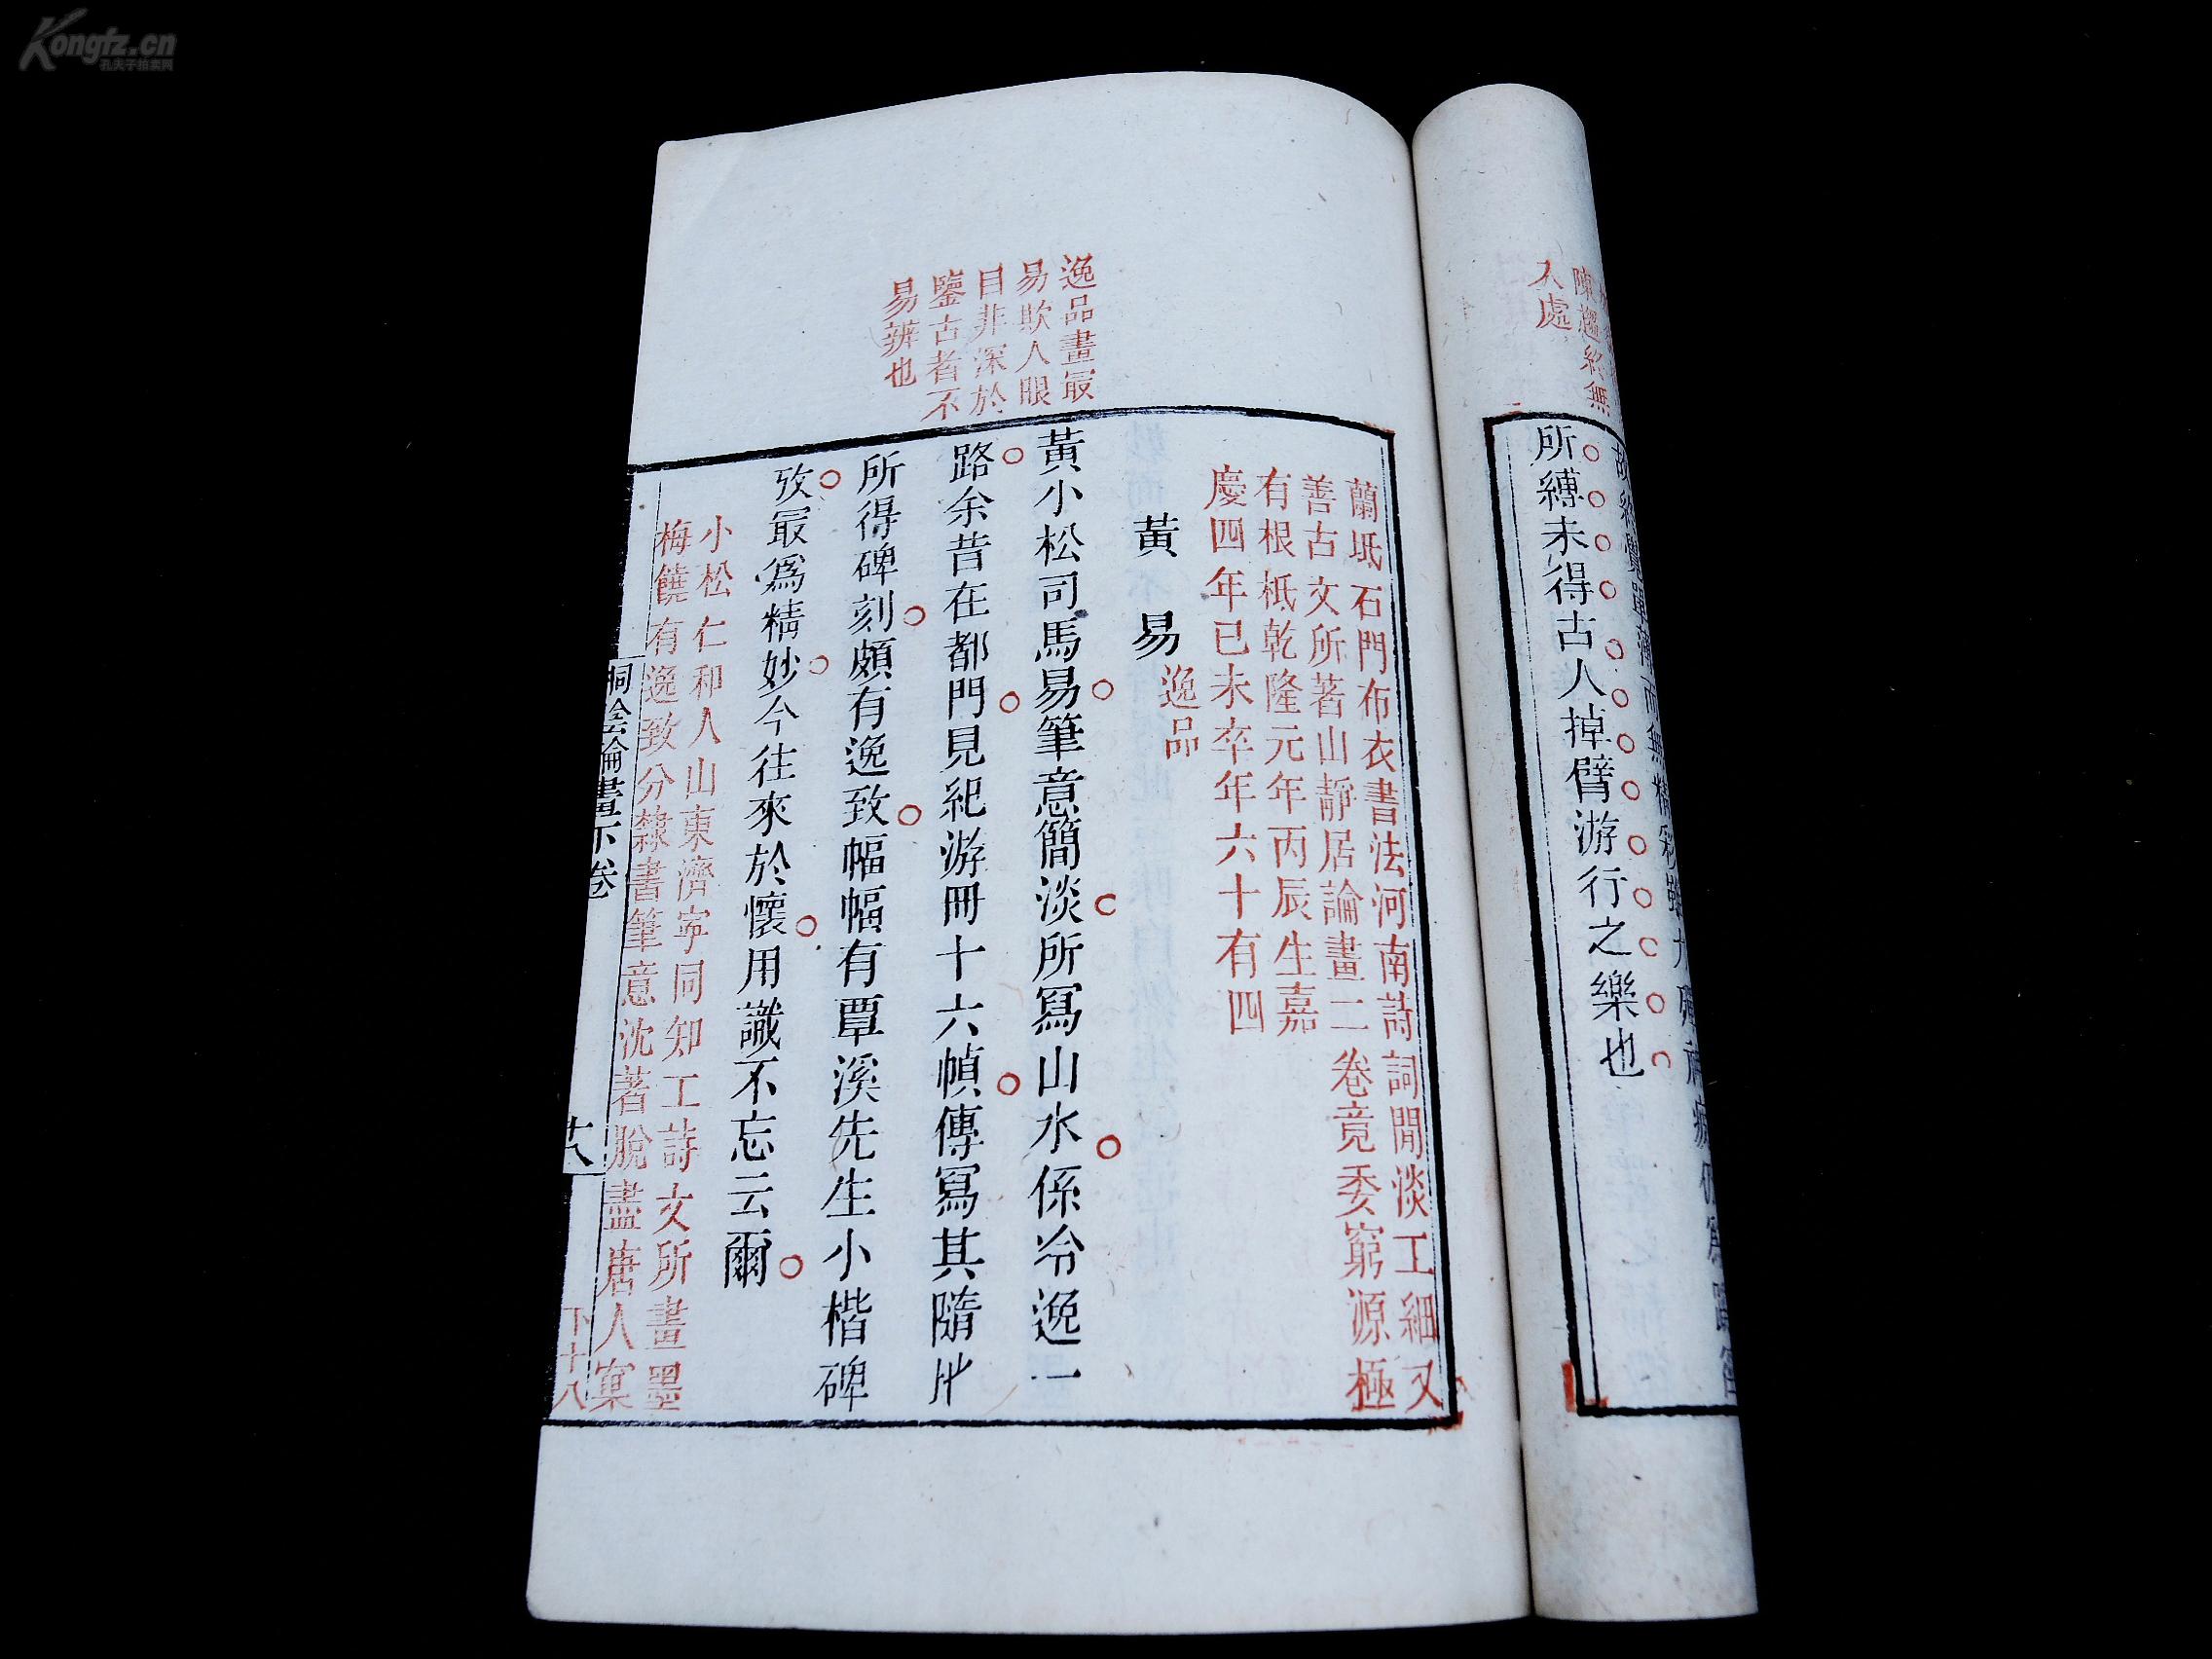 Kongfz.cn
孔夫子拍卖网
陳趨絕無
人處
所縛未得古人掉臂游行之樂也
逸品畫冣
易欺人眼
目非深於
鑒古者不
易辨也
蘭坻石門布衣書法河南詩詞閒淡工細又
善古文所著山靜居論畫二卷竟委窮源極
有根柢乾隆元年丙辰生嘉
慶四年已未卒年六十有四
黃易 逸品
黃小松司馬易筆意簡淡所冩山水係冷逸一
路余昔在都門見紀游冊十六幀傳冩其隨𠂔
所得碑刻頗有逸致幅幅有覃溪先生小楷碑
攷冣爲精妙今往來於懷用識不忘云爾
小松仁和人山東濟寧同知工詩文所畫墨
梅饒有逸致分隸書筆意沈著脫盡唐人窠
桐陰論畫下卷
十八
下十八